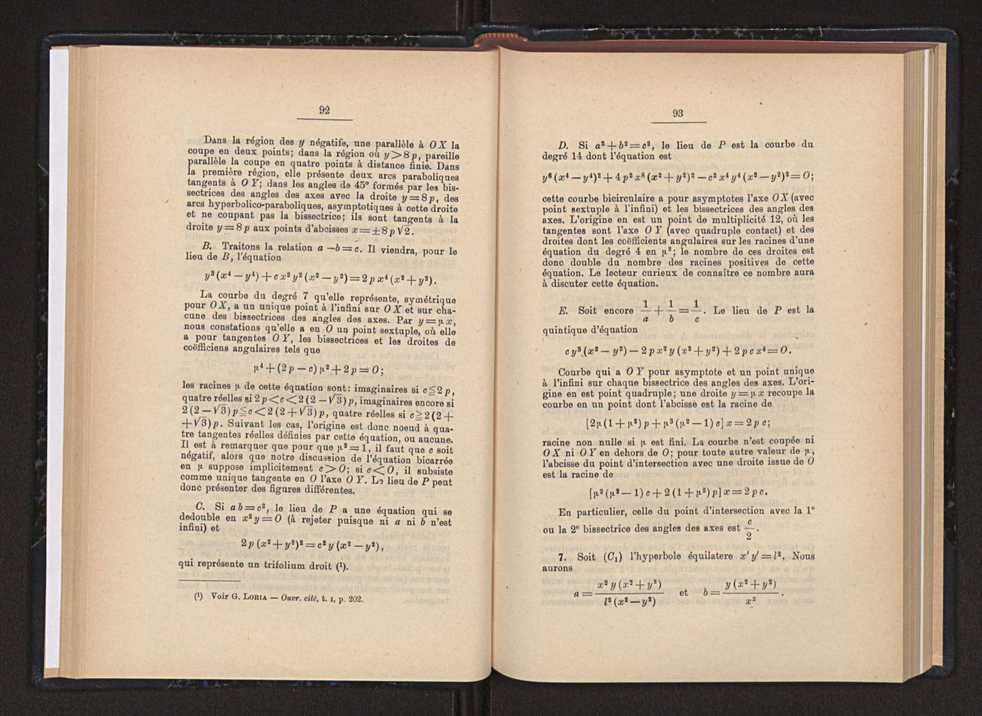 92
Dans la région des y négatifs, une parallèle à OX la
coupe en deux points; dans la région où y>8p, pareille
parallèle la coupe en quatre points à distance finie. Dans
la première région, elle présente deux arcs paraboliques
tangents à OY; dans les angles de 45° formés par les bis-
sectrices des angles des axes avec la droite y=8p, des
arcs hyperbolico-paraboliques, asymptotiques à cette droite
et ne coupant pas la bissectrice; ils sont tangents à la
droite y=8p aux points d'abcisses x=±8p√2.
B. Traitons la relation a−b=c. Il viendra, pour le
lieu de B, l'équation
y³(x⁴−y⁴)+cx²y²(x²−y²)=2px⁴(x²+y²).
La courbe du degré 7 qu'elle représente, symétrique
pour OX, a un unique point à l'infini sur OX et sur cha-
cune des bissectrices des angles des axes. Par y=μx,
nous constations qu'elle a en O un point sextuple, où elle
a pour tangentes OY, les bissectrices et les droites de
coëfficiens angulaires tels que
μ⁴+(2p−c)μ²+2p=O;
les racines μ de cette équation sont: imaginaires si c≦2p,
quatre réelles si 2p<c<2(2−√3)p, imaginaires encore si
2(2−√3)p≦c<2(2+√3)p, quatre réelles si c≧2(2+
+√3)p. Suivant les cas, l'origine est donc noeud à qua-
tre tangentes réelles définies par cette équation, ou aucune.
Il est à remarquer que pour que μ²=1, il faut que c soit
négatif, alors que notre discussion de l'équation bicarrée
en μ suppose implicitement c>O; si c<O, il subsiste
comme unique tangente en O l'axe OY. Le lieu de P peut
donc présenter des figures différentes.
C. Si ab=c², le lieu de P a une équation qui se
dedouble en x²y=O (à rejeter puisque ni a ni b n'est
infini) et
2p(x²+y²)²=c²y(x²−y²),
qui représente un trifolium droit (¹).
(¹) Voir G. LORIA — Ouvr. cité, t. I, p. 202.
93
D. Si a²+b²=c², le lieu de P est la courbe du
degré 14 dont l'équation est
y⁶(x⁴−y⁴)²+4p²x⁸(x²+y²)²−c²x⁴y⁴(x²−y²)²=O;
cette courbe bicirculaire a pour asymptotes l'axe OX (avec
point sextuple à l'infini) et les bissectrices des angles des
axes. L'origine en est un point de multiplicité 12, où les
tangentes sont l'axe OY (avec quadruple contact) et des
droites dont les coëfficients angulaires sur les racines d'une
équation du degré 4 en μ²; le nombre de ces droites est
donc double du nombre des racines positives de cette
équation. Le lecteur curieux de connaître ce nombre aura
à discuter cette équation.
E. Soit encore 1/a + 1/b = 1/c. Le lieu de P est la
quintique d'équation
cy³(x²−y²)−2px²y(x²+y²)+2pcx⁴=O.
Courbe qui a OY pour asymptote et un point unique
à l'infini sur chaque bissectrice des angles des axes. L'ori-
gine en est point quadruple; une droite y=μx recoupe la
courbe en un point dont l'abcisse est la racine de
[2μ(1+μ²)p+μ³(μ²−1)c]x=2pc;
racine non nulle si μ est fini. La courbe n'est coupée ni
OX ni OY en dehors de O; pour toute autre valeur de μ,
l'abcisse du point d'intersection avec une droite issue de O
est la racine de
[μ²(μ²−1)c+2(1+μ²)p]x=2pc.
En particulier, celle du point d'intersection avec la 1ᵉ
ou la 2ᵉ bissectrice des angles des axes est c/2.
7. Soit (C₁) l'hyperbole équilatere x′y′=l². Nous
aurons
a = x²y(x²+y²)/l²(x²−y²) et b = y(x²+y²)/x².